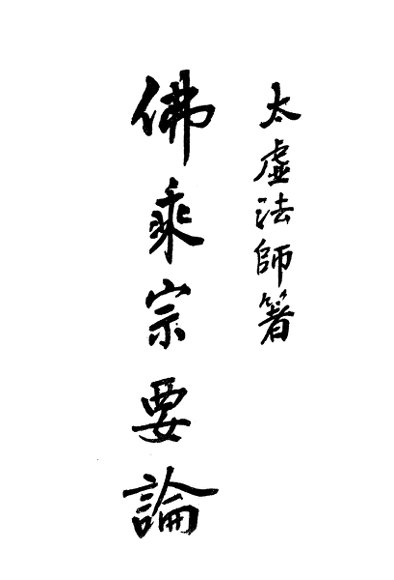 太虛法師箸
佛乘宗要論